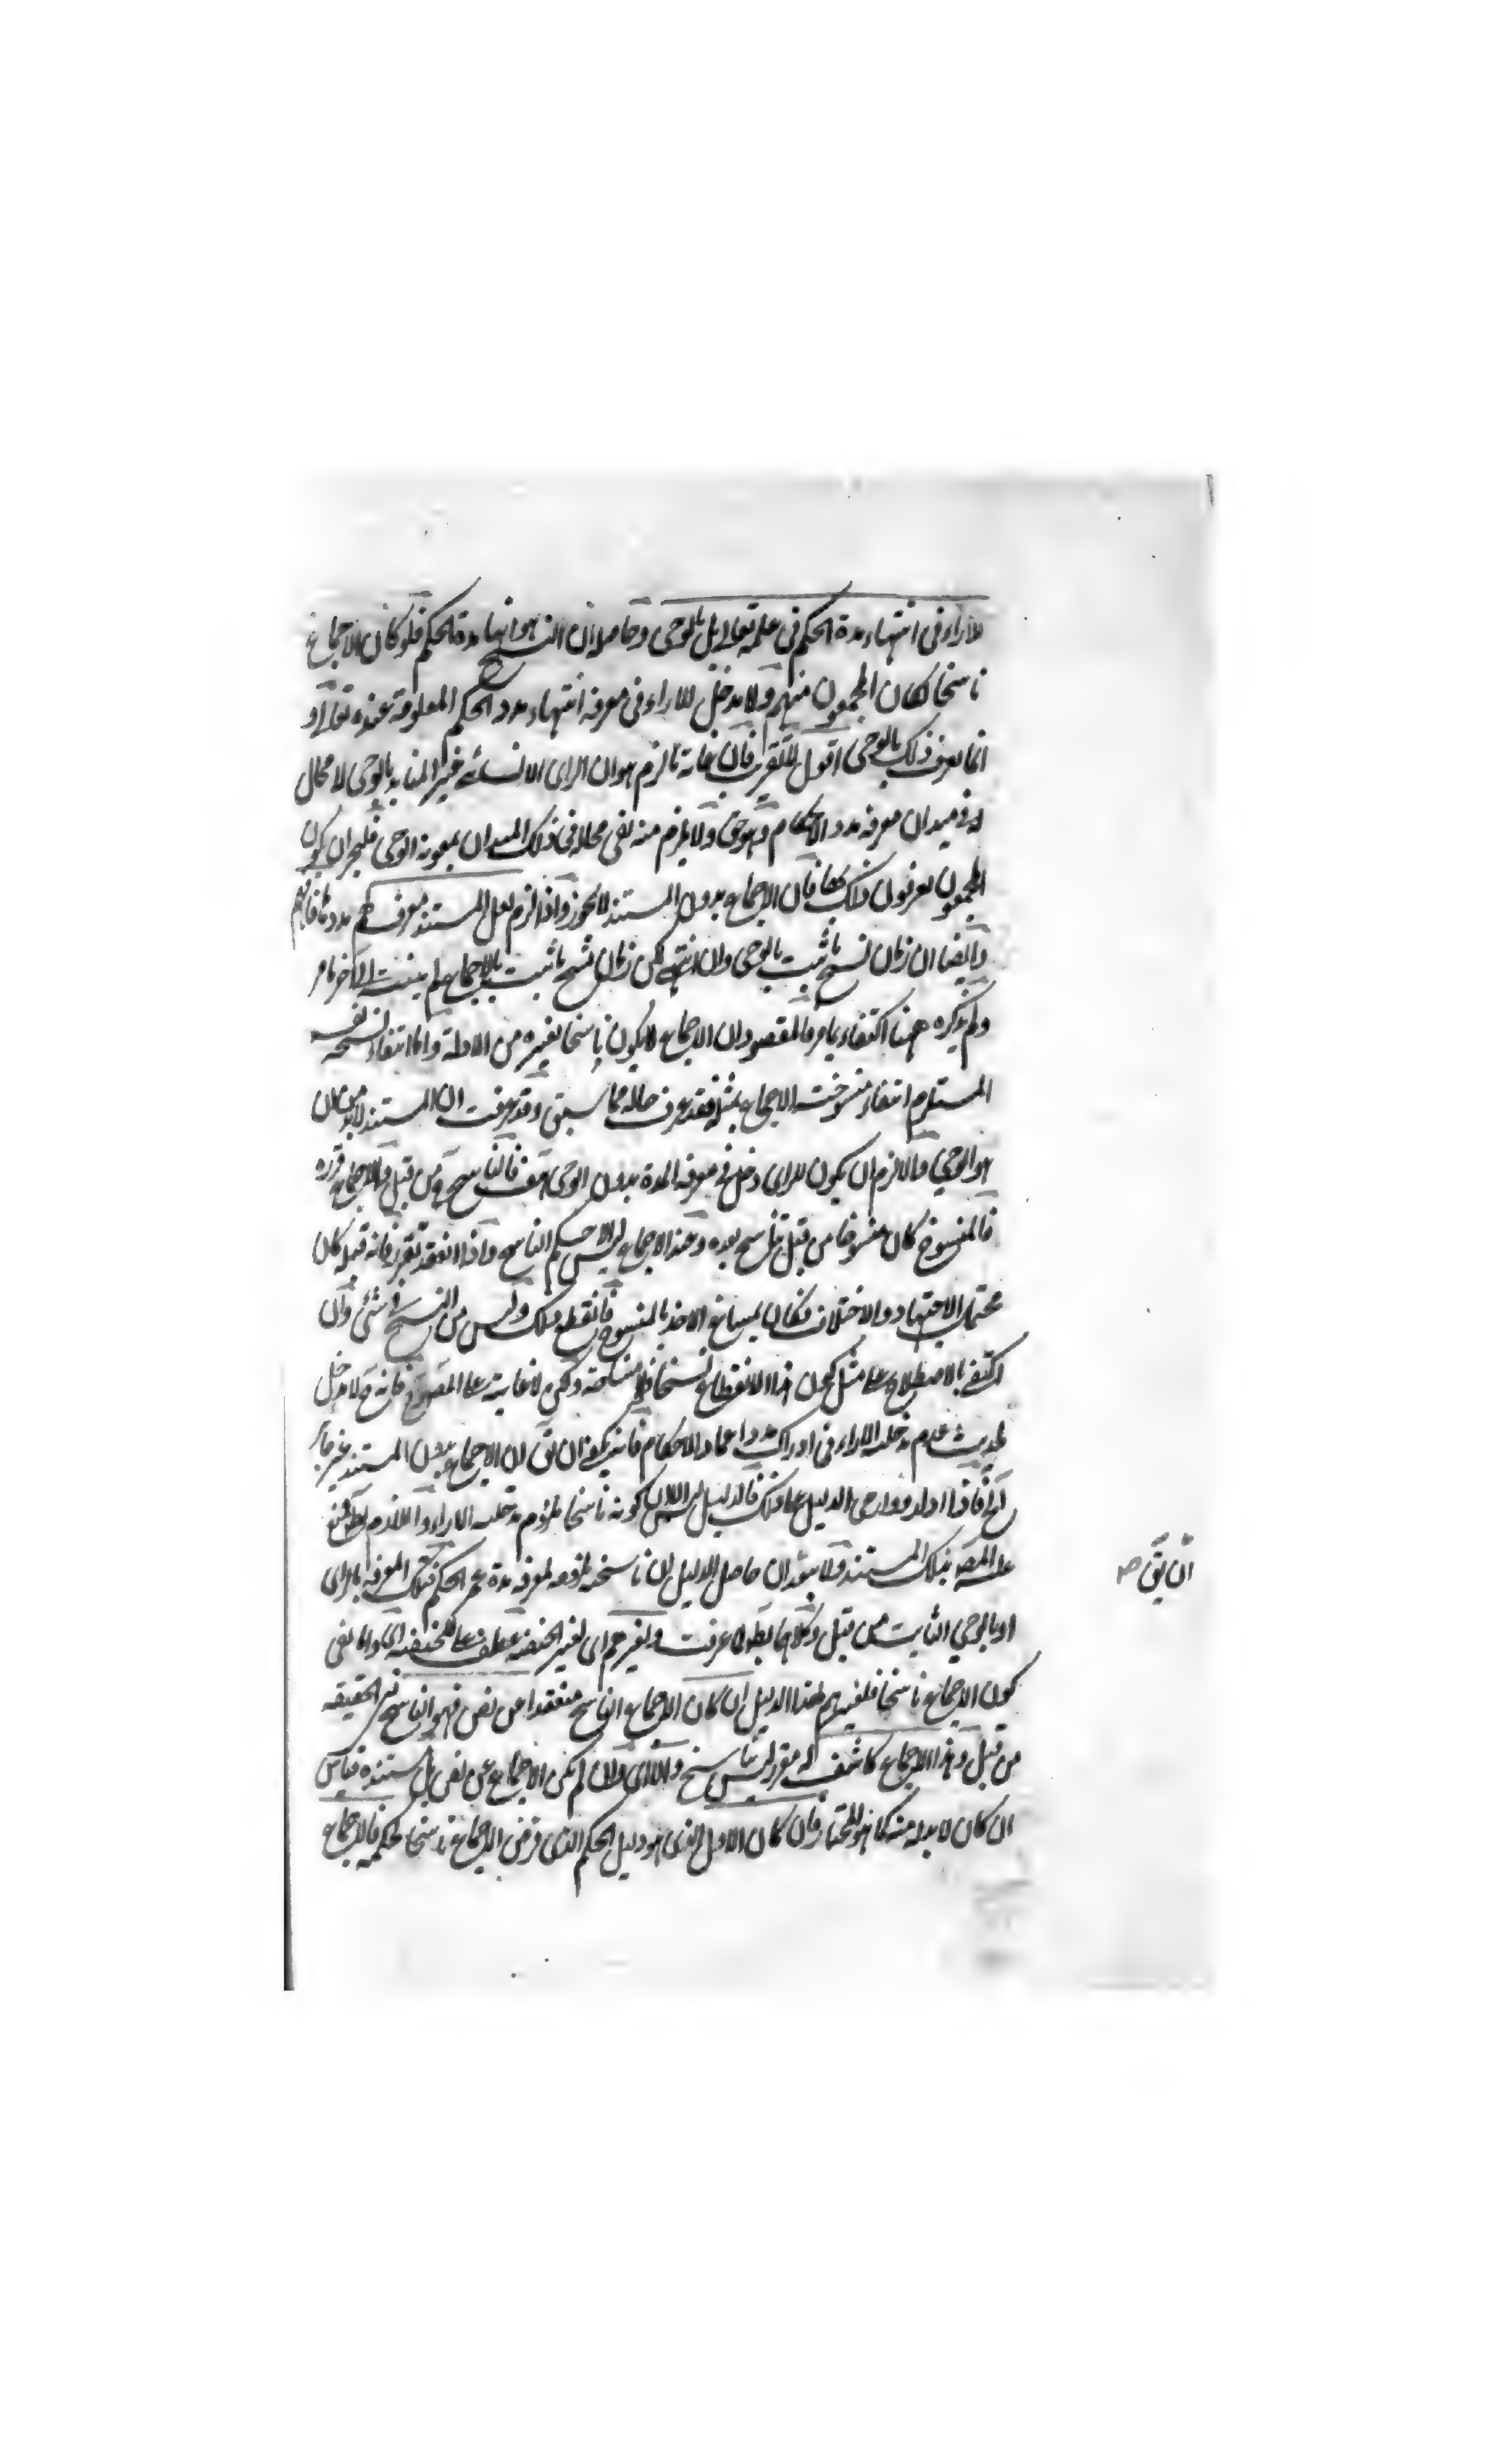 للاراء فى انتهاء مدة الحكم فى علمه تعالى بل بالوحى وحاصله ان النسخ هو انتهاء مدة الحكم فلو كان الاجماع
ناسخا لكان المجمعون منهم ولا مدخل للاراء فى معرفة انتهاء مدد الحكم المعلومة عنده تعالى و
انما يعرف ذلك بالوحى اقول التقريب فان غاية ما لزم هو ان الراى الانسانى غير المتايد بالوحى لا مجال
له فى ميدان معرفة مدد الاحكام وهو حق ولا يلزم منه نفى مجاله فى ذلك الميدان بمعونة الوحى فليجز ان يكون
المجمعون يعرفون ذلك فان الاجماع بدون المستند لا يجوز واذا لزم لعل المستند معرف لهم
وايضا ان زمان نسخ ما ثبت بالوحى وان انتهى لكن زمان نسخ ما ثبت بالاجماع لم ينته الى اخر ما مر
ولم يذكره ههنا اكتفاء بما مر فالمقصود ان الاجماع لا يكون ناسخا لغيره من الادلة واما انتفاء نسخه لنفسه
المستلزم انتفاء منسوخية الاجماع بمثله فقد عرف حاله مما سبق وقد عرفت ان المستند لابد من ان
هو الوحى والا لزم ان يكون للراى دخل فى معرفة المدة بدون الوحى هف فالناسخ هو من قبل والاجماع قرره
فالمنسوخ كان منسوخا من قبل بناسخ بعده وعند الاجماع ليس الا حكم الناسخ واذا انعقد تقرر فانه قبله كان
محتمل الاجتهاد والاختلاف فكان يساغ الاخذ بالمنسوخ فانقطع ذلك وليس من النسخ فى شئ وان
اكتفى بالاصطلاح على مثل كون هذا الانقطاع نسخا فلا مشاحة ولكن لا غاية على المقصود فانه ح لا مدخل
لحديث عدم مدخلية الاراء فى ادراك مدد اعمار الاحكام فان يكون ان يق ان الاجماع بدون المستند غير جائز
الخ فاذا الدليل على ذلك فالدليل كونه ناسخا ملزوم مدخلية الاراء واللازم بط
عليه المص بتلك المستند ولا يبعد ان حاصل الدليل ان ناسخيته ملزومة لمعرفة مدة عمر الحكم فتلك المعرفة بالراى
او بالوحى الثابت من قبل وكلاهما بط لما عرفت ولغيرهم اى لغير الحنفية عطف على للحنفية اى واما نفى
كون الاجماع ناسخا فلغيرهم لهذا الدليل ان كان الاجماع الناسخ منعقدا عن نص فهو الناسخ فى الحقيقة
من قبل وهذا الاجماع كاشف له مقرر ليس بناسخ والا اى وان لم يكن الاجماع عن نص بل مستنده قياس
ان كان لابد له منه كما هو المختار فان كان الاول الذى هو دليل الحكم الذى فرض الاجماع ناسخا لحكمه فالاجماع
ان يق صح